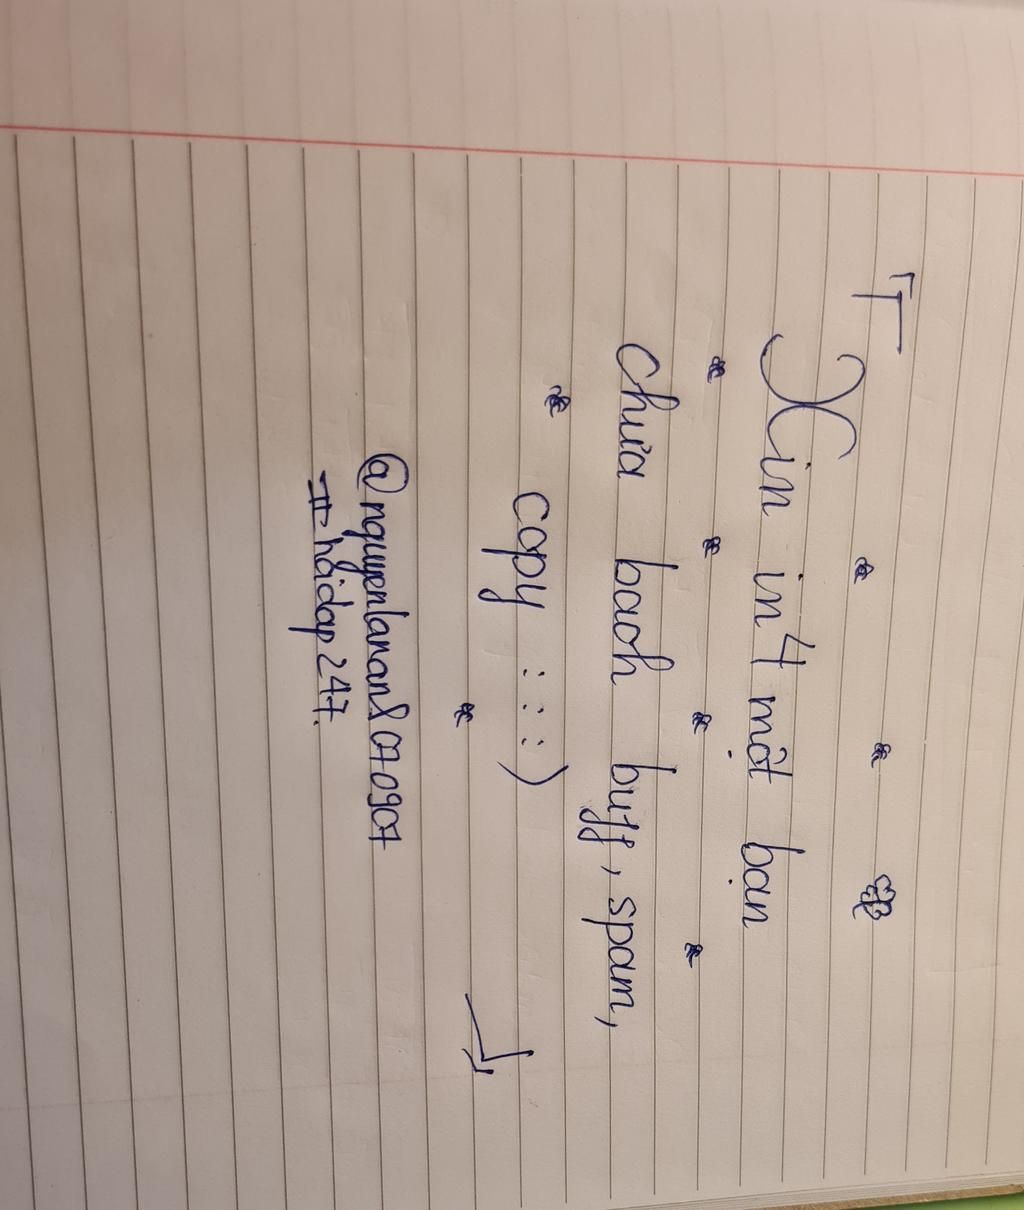 Xin in4 một bạn
chưa baoh buff, spam,
copy : : : )
@nguyenlanan8070907
#hoidap247.